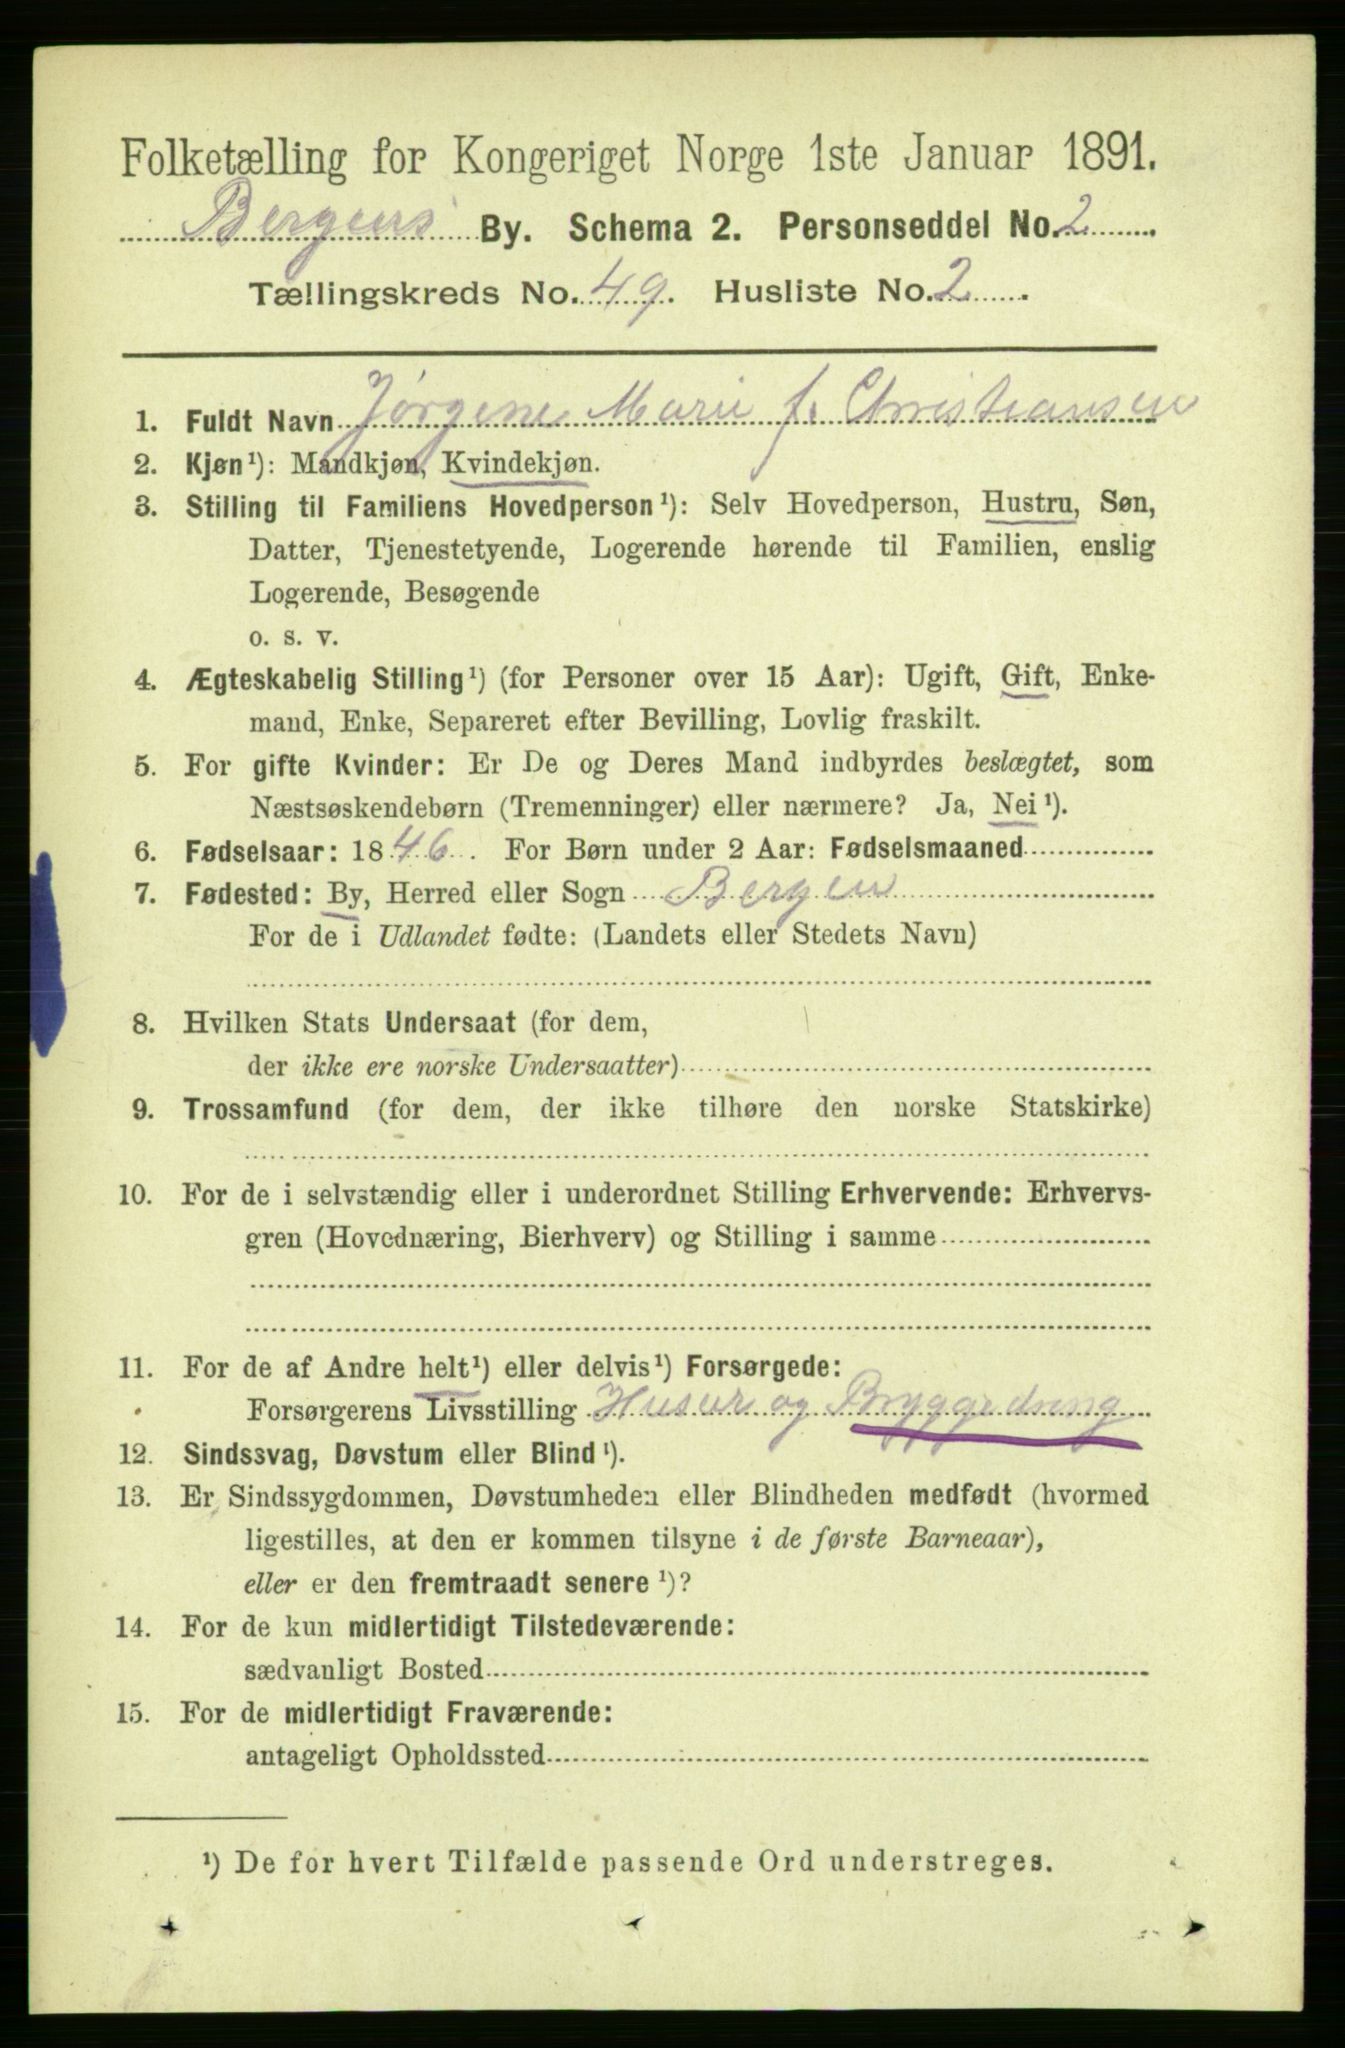 Folketælling for Kongeriget Norge 1ste Januar 1891.
Bergens By. Schema 2. Personseddel No. 2
Tællingskreds No. 49. Husliste No. 2.
1. Fuldt Navn Jörgene Marie f. Christiansen
2. Kjøn¹): Mandkjøn, Kvindekjøn.
3. Stilling til Familiens Hovedperson¹): Selv Hovedperson, Hustru, Søn,
Datter, Tjenestetyende, Logerende hørende til Familien, enslig
Logerende, Besøgende
o. s. v.
4. Ægteskabelig Stilling¹) (for Personer over 15 Aar): Ugift, Gift, Enke-
mand, Enke, Separeret efter Bevilling, Lovlig fraskilt.
5. For gifte Kvinder: Er De og Deres Mand indbyrdes beslægtet, som
Næstsøskendebørn (Tremenninger) eller nærmere? Ja, Nei¹).
6. Fødselsaar: 1846. For Børn under 2 Aar: Fødselsmaaned
7. Fødested: By, Herred eller Sogn Bergen
For de i Udlandet fødte: (Landets eller Stedets Navn)
8. Hvilken Stats Undersaat (for dem,
der ikke ere norske Undersaatter)
9. Trossamfund (for dem, der ikke tilhøre den norske Statskirke)
10. For de i selvstændig eller i underordnet Stilling Erhvervende: Erhvervs-
gren (Hovednæring, Bierhverv) og Stilling i samme
11. For de af Andre helt¹) eller delvis¹) Forsørgede:
Forsørgerens Livsstilling og
12. Sindssvag, Døvstum eller Blind¹).
13. Er Sindssygdommen, Døvstumheden eller Blindheden medfødt (hvormed
ligestilles, at den er kommen tilsyne i de første Barneaar),
eller er den fremtraadt senere¹)?
14. For de kun midlertidigt Tilstedeværende:
sædvanligt Bosted
15. For de midlertidigt Fraværende:
antageligt Opholdssted
¹) De for hvert Tilfælde passende Ord understreges.